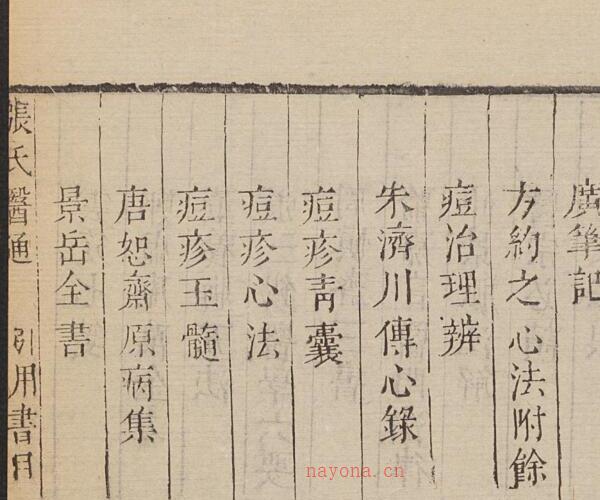 廣筆記
方約之心法附餘
痘治理辨
朱濟川傳心錄
痘疹青囊
痘疹心法
痘疹玉髓
唐恕齋原病集
景岳全書
張氏醫通 引用書目
nayona.cn